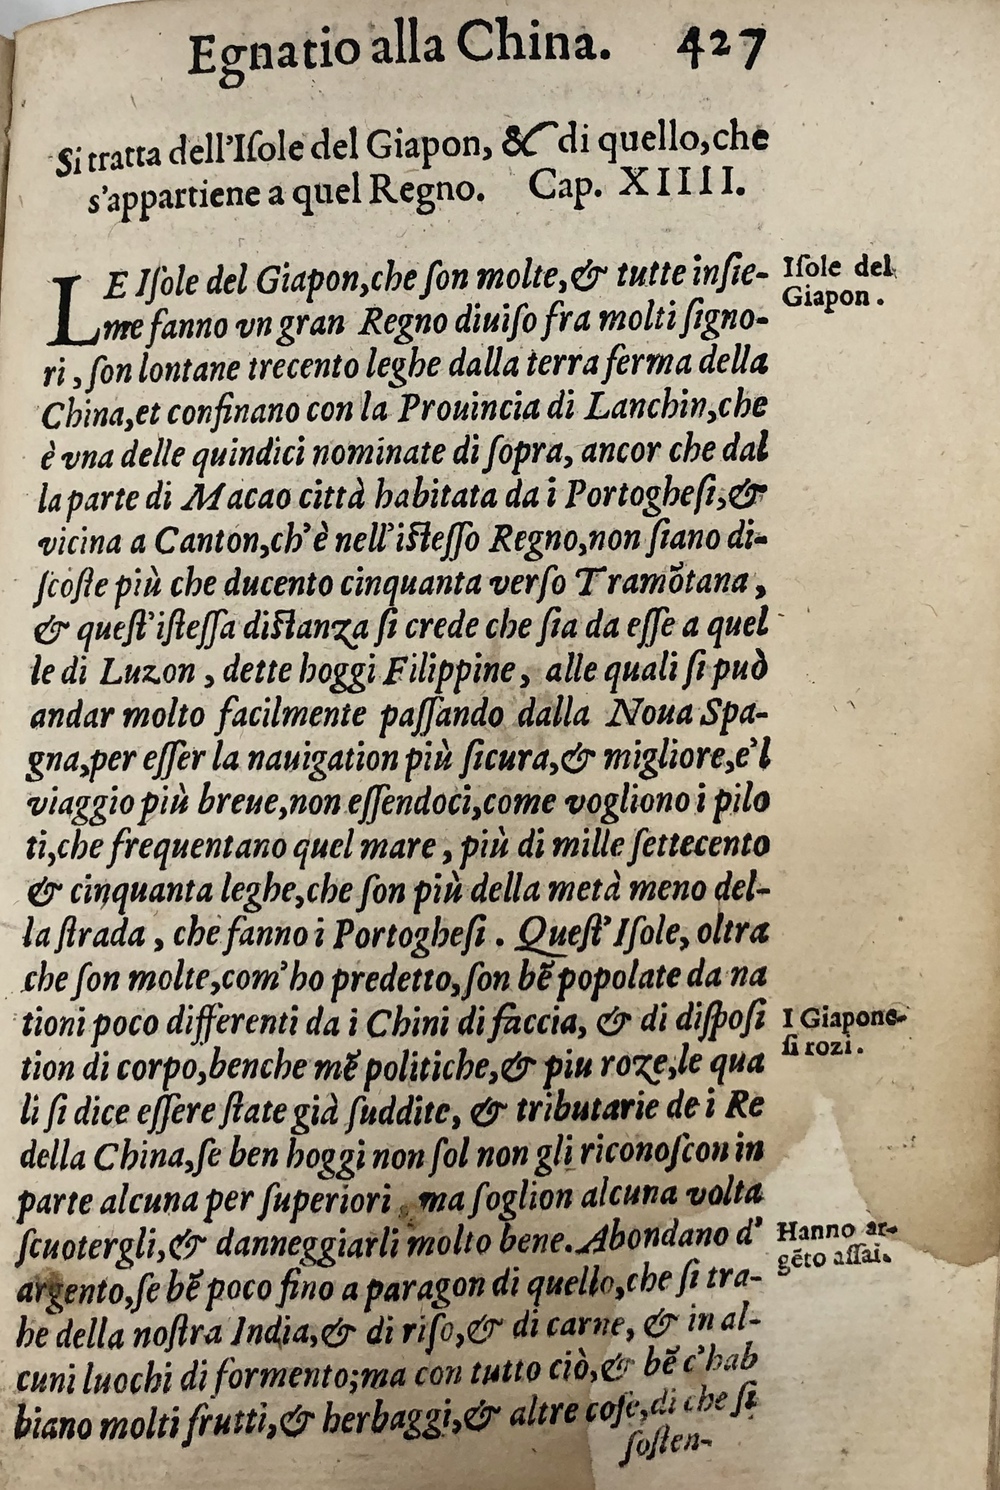 Egnatio alla China. 427
Si tratta dell'Iſole del Giapon, & di quello, che
s'appartiene a quel Regno. Cap. XIIII.
LE Iſole del Giapon, che ſon molte, & tutte inſie-
me fanno vn gran Regno diuiſo fra molti ſigno-
ri, ſon lontane trecento leghe dalla terra ferma della
China, et confinano con la Prouincia di Lanchin, che
è vna delle quindici nominate di ſopra, ancor che dal
la parte di Macao città habitata da i Portogheſi, &
vicina a Canton, ch'è nell'iſteſſo Regno, non ſiano di-
ſcoſte più che ducento cinquanta verſo Tramõtana,
& queſt'iſteſſa diſtanza ſi crede che ſia da eſſe a quel
le di Luzon, dette hoggi Filippine, alle quali ſi può
andar molto facilmente paſſando dalla Noua Spa-
gna, per eſſer la nauigation più ſicura, & migliore, e'l
viaggio più breue, non eſſendoci, come vogliono i pilo
ti, che frequentano quel mare, più di mille ſettecento
& cinquanta leghe, che ſon più della metà meno del-
la ſtrada, che fanno i Portogheſi. Queſt'Iſole, oltra
che ſon molte, com'ho predetto, ſon bẽ popolate da na
tioni poco differenti da i Chini di faccia, & di diſpoſi
tion di corpo, benche mẽ politiche, & piu roze, le qua
li ſi dice eſſere ſtate già ſuddite, & tributarie de i Re
della China, ſe ben hoggi non ſol non gli riconoſcon in
parte alcuna per ſuperiori, ma ſoglion alcuna volta
ſcuotergli, & danneggiarli molto bene. Abondano d'
argento, ſe bẽ poco fino a paragon di quello, che ſi tra-
he della noſtra India, & di riſo, & di carne, & in al-
cuni luochi di formento; ma con tutto ciò, & bẽ c'hab
biano molti frutti, & herbaggi, & altre coſe, di che ſi
ſoſten-
Iſole del
Giapon.
I Giapone-
ſi rozi.
Hanno ar-
gẽto aſſai.